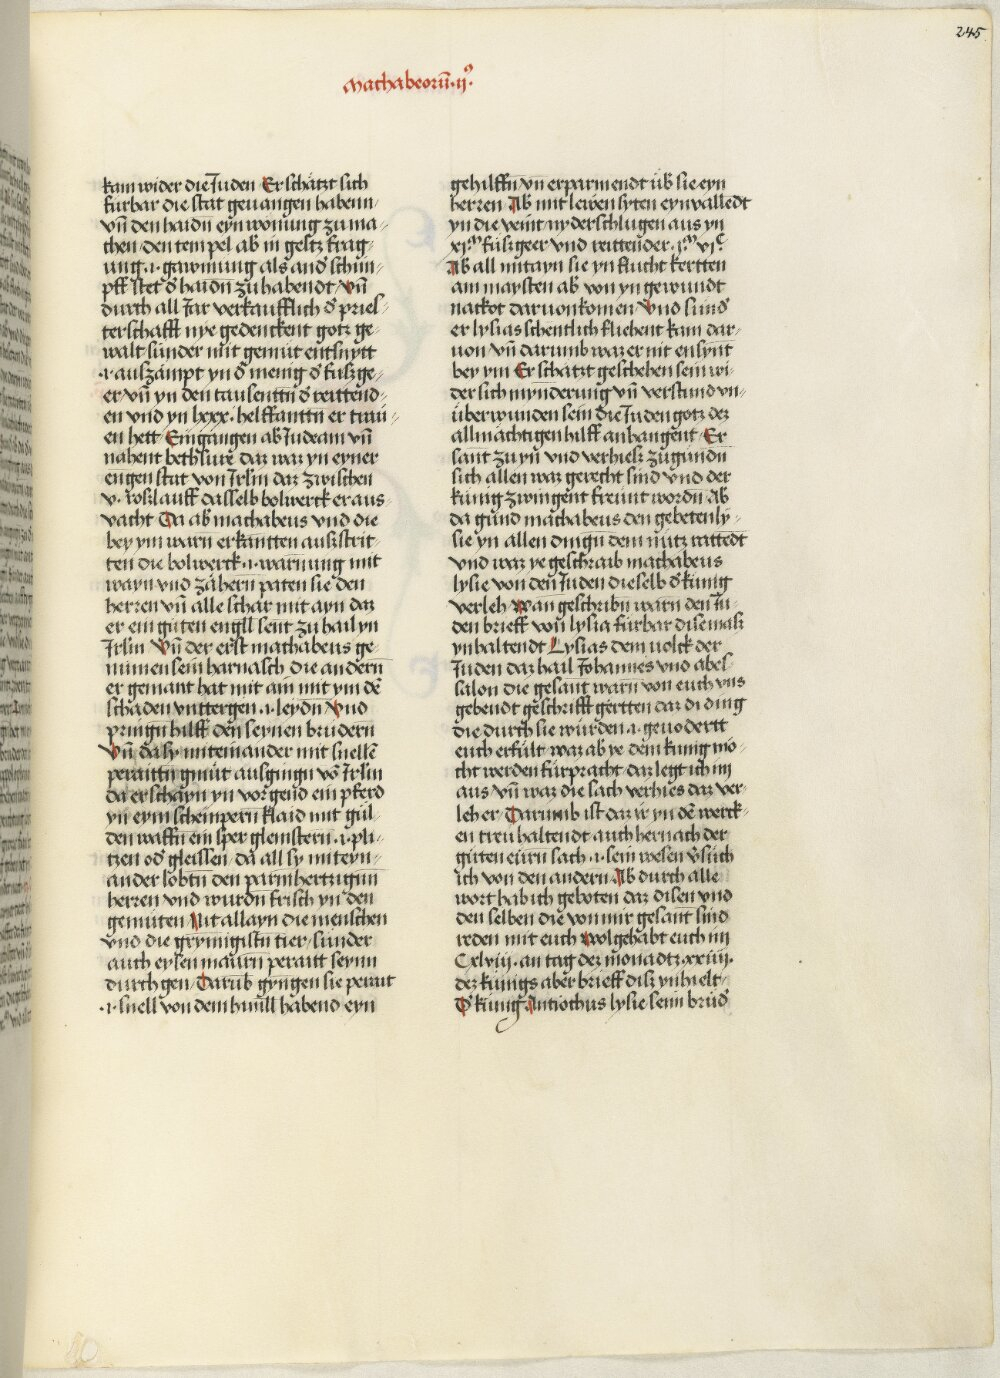 245
Machabeorū·ij°·
kam wider die Juden Er schätzt sich
fürbar die stat geuangen habenn
vn̄ den haidn̄ eyn wonung zu ma-
chen den tempel ab in geltz frag-
ung ·i· gewinnung als and̕ schim-
pff stet d̕ haidn̄ zu habendt Vn̄
durch all Jar verkaufflich d̕ pries-
terschafft nye gedenckent gotz ge-
walt sunder mit gemüt entsnytt
·i· auszämpt yn d̕ menig d̕ fuszge-
er vn̄ yn den tausenttn̄ d̕ reittend-
en vnd yn lxxx· helffanttn̄ er trau-
en hett Eingangen ab Judeam vn̄
nahent bethsurē daz waz yn eyner
engen stat von Jrlm̄ daz zwischen
v· roszlauff dasselb bolwerck er aus
vacht Da ab machabeus vnd die
bey ym warn erkantten auszstrit-
ten die bolwerck ·i· warnung mit
wayn vnd zähern paten sie den
herren vn̄ alle schar mit ayn daz
er ein güten engll sent zu hail yn
Jrlm̄ Vn̄ der erst machabeus ge-
numen sein harnasch die andern̄
er gemant hat mit am̄ mit ym dē
schaden vnttergen ·i· leydn̄ Vnd
pringn̄ hilff den seynen brüdern
Vn̄ da sy miteinander mit snellē
peraittn̄ gmüt ausgingn̄ vō Jrlm̄
da erschayn yn vorgend ein pferd
yn eym schempern klaid mit gül-
den waffn̄ ein sper glemstern ·i· pli-
tzen od̕ gleissen da all sy miteyn-
ander lobtn̄ den parmhertzign̄
herren vnd wurdn̄ frisch yn den
gemüten Nit allayn die menschen
vnd die grymigistn̄ tier sunder
auch eysen maurn peraitt seynn
durchgen Darūb gyngen sie perait
·i· snell von dem himll habend eyn
gehilffn̄ vn̄ erparmendt üb̕ sie eyn
herren Ab mit lewen syten eynvalledt
yn die veint nyderschlugen aus yn
xjᵐ fuszgeer vnd reittender jᵐ vjᶜ
Ab all mitayn sie yn flucht kertten
am maysten ab von yn gewundt
nackot daruonkomen Vnd sund̕
er lysias schentlich fliehent kam dar-
uon Vn̄ darumb waz er nit ensynt
bey ym Er schatzt geschehen sein wi-
der sich mynderung vn̄ verstund vn-
überwunden sein die Juden gotz dez
allmächtigen hilff anhangent Er
sant zu yn̄ vnd verhiesz zugündn̄
sich allen waz gerecht sind vnd der
künig zwingent freunt wordn̄ Ab
da gund machabeus den gebeten ly-
sie yn allen dingn̄ dem nütz rattedt
vnd waz ye geschraib machabeus
lysie von den̄ Juden dieselb d̕ künig
verleh Wan geschribn̄ warn den̄ Ju-
den brieff von̄ lysia fürbar disemasz
ynhaltendt Lysias dem uolck der
Juden daz hail Johannes vnd abes-
salon die gesant warn̄ von euch vns
gebendt geschrifft gertten daz di ding
die durch sie würden ·i· geuodertt
euch erfült waz ab ye dem kunig mö-
cht werden fürpracht daz legt ich im
aus vn̄ waz die sach verhies daz ver-
leh er Darumb ist daz ir yn dē werck-
en treu haltendt auch hernach der
güten eurn̄ sach ·i· sein wesen v̕such
ich von den andern Ab durch alle
wort hab ich geboten daz disen vnd
den selben die von mir gesant sind
reden mit euch Wolgehabt euch im
Cxlviij· an tag dez monadtz xxiiij·
dez künigs aber brieff disz ynhielt-
D̕ künig Antiochus lysie seim brud̕